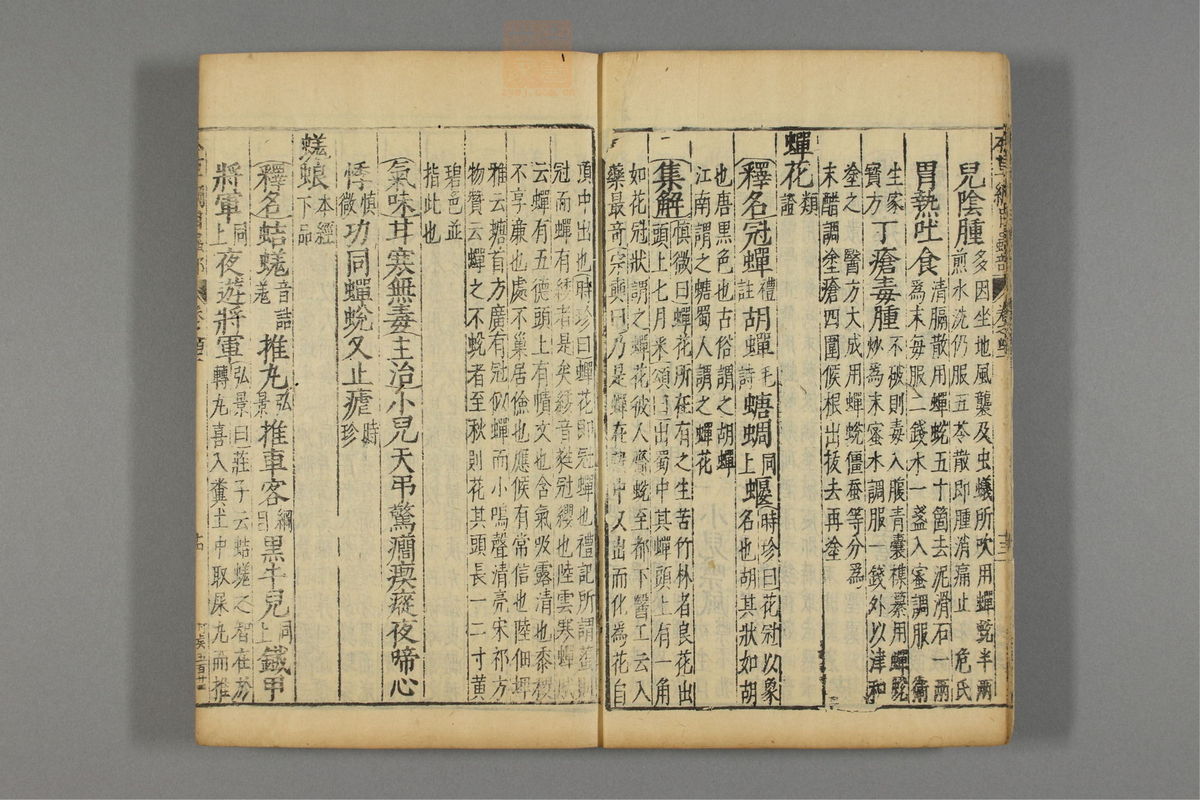 兒陰腫多因坐地風襲及虫蟻所吹用蟬蛻半兩
煎水洗仍服五苓散即腫消痛止危氏
胃熱吐食清膈散用蟬蛻五十箇去泥滑石一兩
為末每服二錢水一盞入蜜調服衛
生家寶方丁瘡毒腫不破則毒入腹青囊襍纂用蟬蛻
炒為末蜜水調服一錢外以津和
塗之醫方大成用蟬蛻僵蚕等分為
末醋調塗瘡四圍候根出拔去再塗
蟬花證類
釋名冠蟬禮註胡蟬毛詩螗蜩同上蝘時珍曰花冠以象
名也胡其狀如胡
也唐黑色也古俗謂之胡蟬
江南謂之螗蜀人謂之蟬花
集解慎微曰蟬花所在有之生苦竹林者良花出
頭上七月采頌曰出蜀中其蟬頭上有一角
如花冠狀謂之蟬花彼人齎蛻至都下醫工云入
藥最奇宗奭曰乃是蟬在殼中不出而化為花自
頂中出也時珍曰蟬花即冠蟬也禮記所謂蟹則
冠而蟬有緌者是矣緌音蕤冠纓也陸雲寒蟬賦
云蟬有五德頭上有幘文也含氣吸露清也黍稷
不享廉也處不巢居儉也應候有常信也陸佃埤
雅云螗首方廣有冠似蟬而小鳴聲清亮宋祁方
物贊云蟬之不蛻者至秋則花其頭長一二寸黃
碧色並
指此也
氣味甘寒無毒主治小兒天弔驚癇瘈瘲夜啼心
悸慎微功同蟬蛻又止瘧時珍
蜣蜋本經下品
釋名蛣蜣音詰羌推丸弘景推車客綱目黑牛兒同上鐵甲
將軍同上夜遊將軍弘景曰莊子云蛣蜣之智在於
轉丸喜入糞土中取屎丸而推